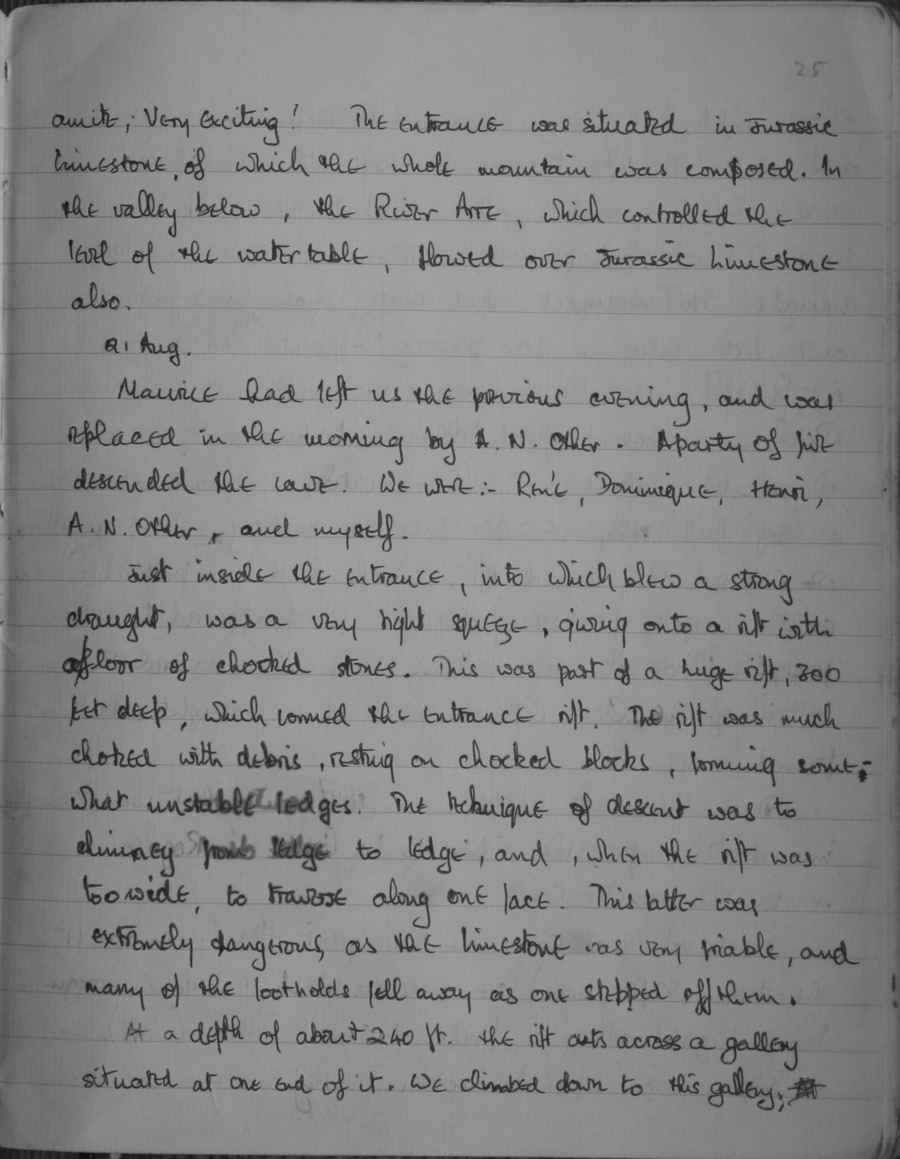 25
awute; Very Exciting! The entrance was situated in Jurassic
limestone, of which the whole mountain was composed. In
the valley below, the River Arve, which controlled the
level of the water table, flowed over Jurassic limestone
also.
21 Aug.
Maurice had left us the previous evening, and was
replaced in the morning by A. N. Other. A party of five
descended the cave. We were:- René, Dominique, Henri,
A. N. Other, and myself.
Just inside the entrance, into which blew a strong
draught, was a very tight squeeze, giving onto a rift with
a floor of chocked stones. This was part of a huge rift, 300
feet deep, which formed the entrance rift. The rift was much
choked with debris, resting on chocked blocks, forming some-
what unstable ledges. The technique of descent was to
chimney from ledge to ledge, and, when the rift was
too wide, to traverse along one face. This latter was
extremely dangerous, as the limestone was very friable, and
many of the footholds fell away as one stepped off them.
At a depth of about 240 ft. the rift cuts across a gallery
situated at one end of it. We climbed down to this gallery;